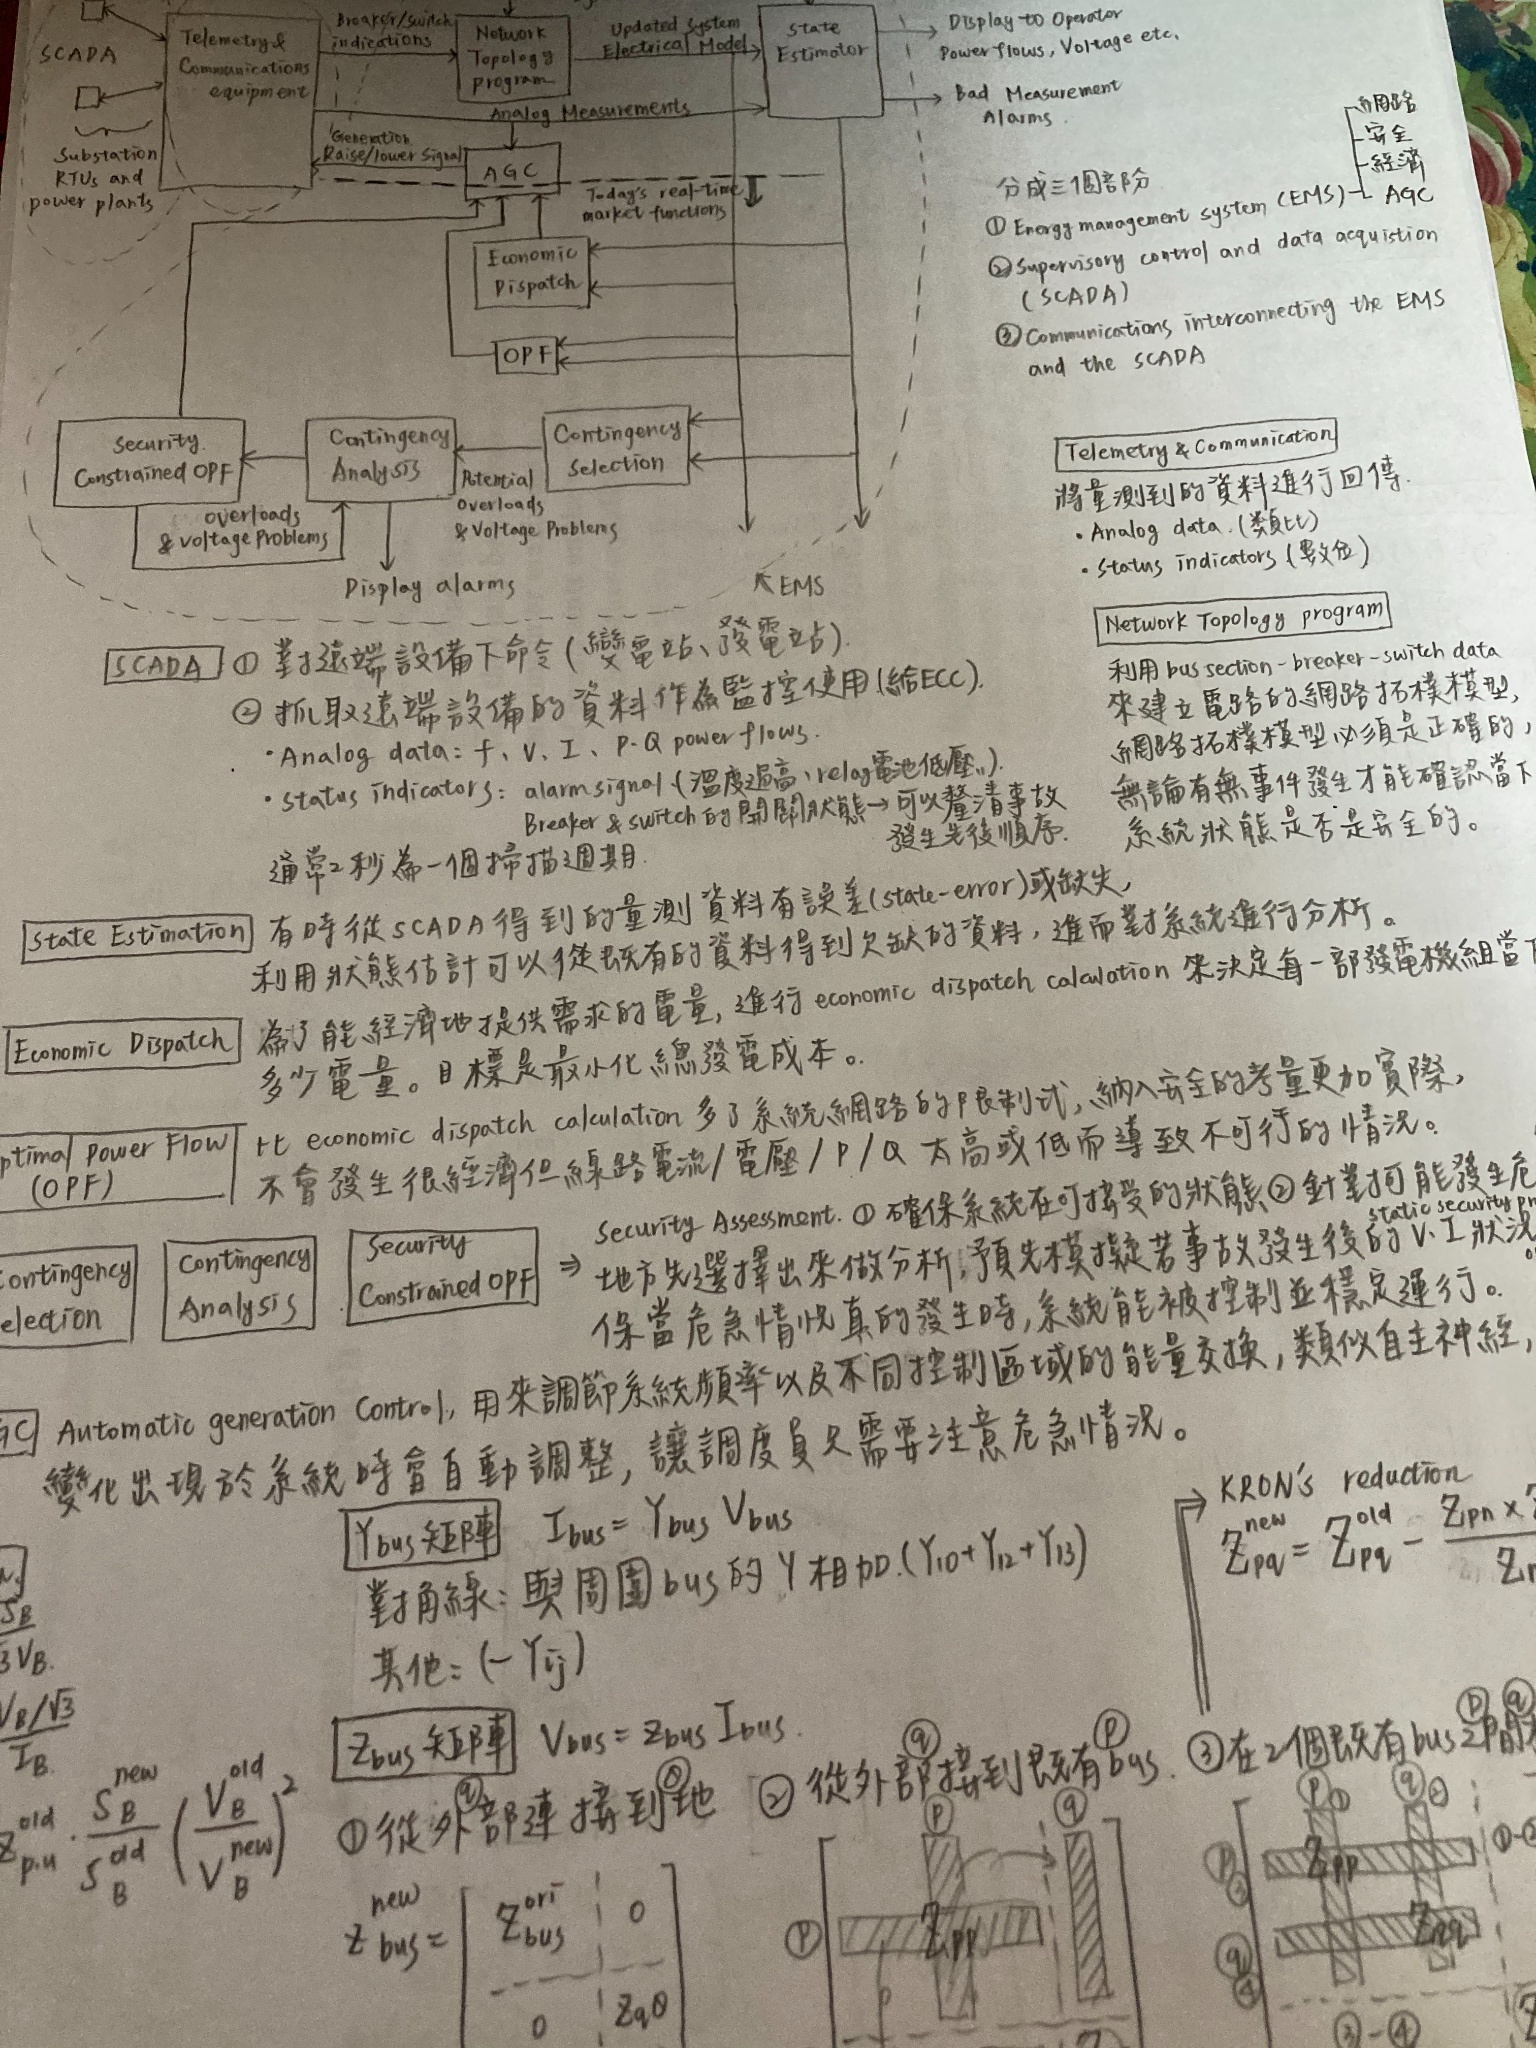 SCADA
Telemetry &
Communications
equipment
Substation
RTUs and
power plants
Breaker/switch
indications
Network
Topology
program
Updated system
Electrical Model
State
Estimator
Display to Operator
Power flows, Voltage etc.
Bad Measurement
Alarms.
Analog Measurements
Generation
Raise/lower Signal
AGC
Today's real-time
market functions
Economic
Dispatch
OPF
Security
Constrained OPF
Contingency
Analysis
Contingency
Selection
Potential
overloads
& Voltage Problems
overloads
& Voltage Problems
Display alarms
EMS
網路
安全
經濟
AGC
分成三個部分
① Energy management system (EMS)
② Supervisory control and data acquistion
(SCADA)
③ Communications interconnecting the EMS
and the SCADA
Telemetry & Communication
將量測到的資料進行回傳.
• Analog data. (類比)
• Status indicators (數位)
Network Topology program
利用bus section-breaker-switch data
來建立電路的網路拓樸模型,
網路拓樸模型必須是正確的,
無論有無事件發生才能確認當下
系統狀態是否是安全的。
SCADA ① 對遠端設備下命令(變電站、發電站).
② 抓取遠端設備的資料作為監控使用(給ECC).
• Analog data: f、V、I、P-Q power flows.
• Status indicators: alarm signal (溫度過高、relay電池低壓..).
Breaker & switch的開關狀態→可以釐清事故
發生先後順序.
通常2秒為一個掃描週期.
State Estimation 有時從SCADA得到的量測資料有誤差(state-error)或缺失,
利用狀態估計可以從既有的資料得到欠缺的資料, 進而對系統進行分析。
Economic Dispatch 為了能經濟地提供需求的電量, 進行economic dispatch calculation 來決定每一部發電機組當下
多少電量。目標是最小化總發電成本。
ptimal Power Flow
(OPF)
比economic dispatch calculation 多了系統網路的限制式, 納入安全的考量更加實際,
不會發生很經濟但線路電流/電壓/P/Q 太高或低而導致不可行的情況。
ontingency
election
Contingency
Analysis
Security
Constrained OPF
⇒ Security Assessment. ① 確保系統在可接受的狀態 ② 針對可能發生危
static security
地方先選擇出來做分析, 預先模擬若事故發生後的V、I狀況
保當危急情況真的發生時, 系統能被控制並穩定運行。
GC Automatic generation Control, 用來調節系統頻率以及不同控制區域的能量交換, 類似自主神經,
變化出現於系統時會自動調整, 讓調度員只需要注意危急情況。
Ybus矩陣 Ibus = Ybus Vbus
對角線: 與周圍bus的Y相加.(Y10+Y12+Y13)
其他: (-Yij)
KRON's reduction
Zpq^new = Zpq^old - Zpn ×
SB
3VB.
VB/√3
IB.
Zp.u^old · SB^new/SB^old (VB^old/VB^new)²
Zbus矩陣 Vbus = Zbus Ibus.
① 從外部連接到地
q
② 從外部接到既有bus.
q p
③ 在2個既有bus之間
p q
Zbus^new =
Zbus^ori 0
0 Zqθ
p q
p Zpp
p ① q ②
p ③ Zpp ①-②
q ④ Zqq
③-④